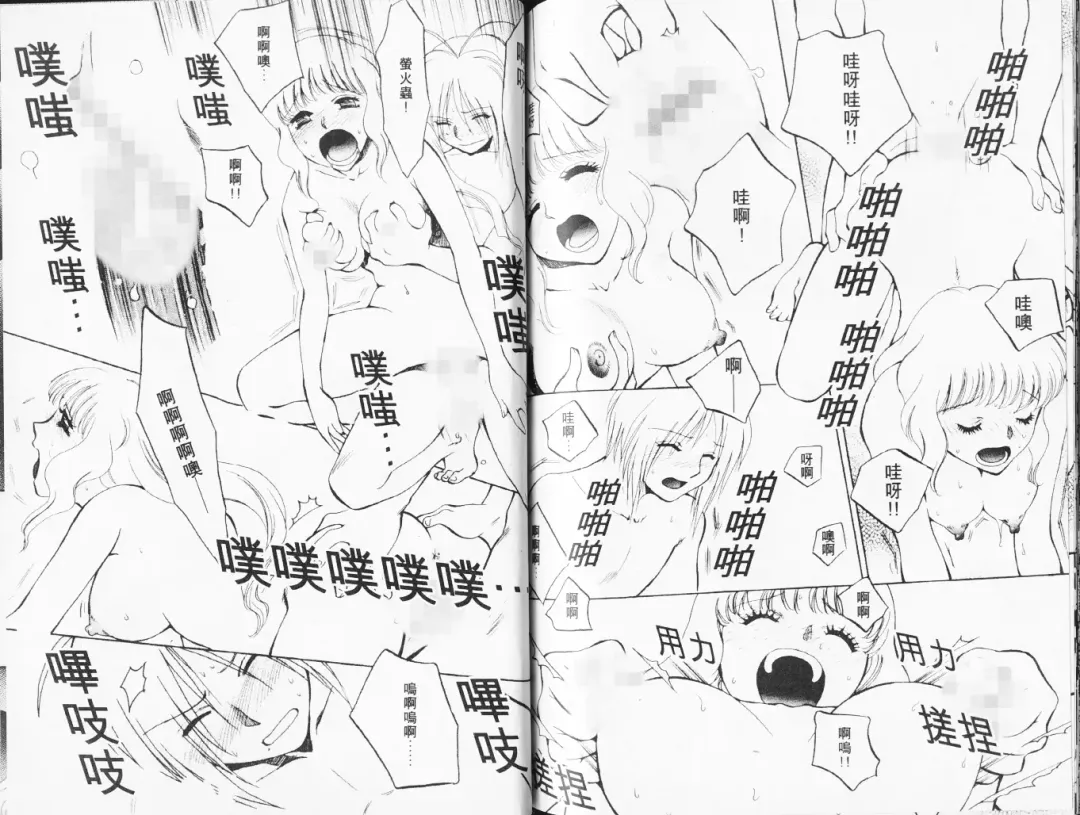 啪啪啪
哇呀哇呀!!
哇啊!
啪啪啪
哇噢
啪啪啪
啊
哇呀!!
呀啊
噢啊
啪啪啪
哇啊…
啪啪啪
啊啊
啊啊
用力
用力
搓捏
搓捏
啊嗚!!
螢火蟲!
啊啊噢…
噗嗤
噗嗤
啊啊!!
噗嗤…
噗嗤
噗嗤…
啊啊啊啊噢
噗噗噗噗噗…
嗶吱
嗚啊嗚啊……
嗶吱吱